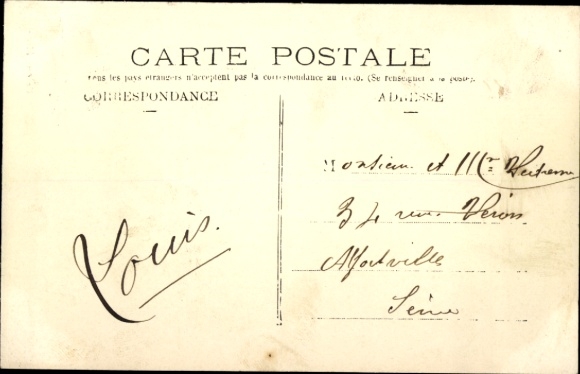 CARTE POSTALE
Tous les pays étrangers n'acceptent pas la correspondance au recto. (Se renseigner à la poste).
CORRESPONDANCE
ADRESSE
Monsieur et Mme
34 rue Véron
Alfortville
Seine
Louis.